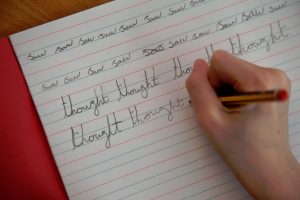 saw saw saw saw saw saw saw saw
saw saw saw saw saw saw saw saw saw saw
thought thought thought thought
thought thought